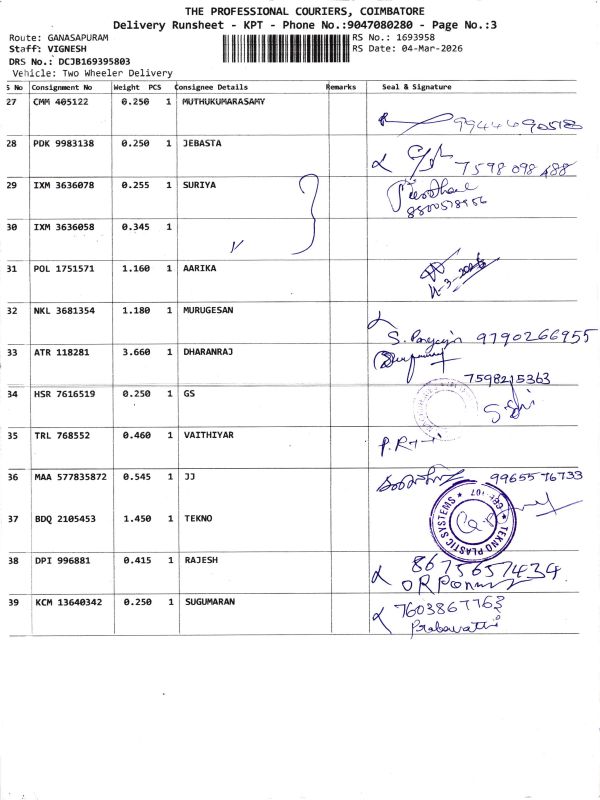 THE PROFESSIONAL COURIERS, COIMBATORE
Delivery Runsheet - KPT - Phone No.:9047080280 - Page No.:3
Route: GANASAPURAM RS No.: 1693958
Staff: VIGNESH RS Date: 04-Mar-2026
DRS No.: DCJB169395803
Vehicle: Two Wheeler Delivery
S No Consignment No Weight PCS Consignee Details Remarks Seal & Signature
27 CMM 405122 0.250 1 MUTHUKUMARASAMY
9944690518
28 PDK 9983138 0.250 1 JEBASTA
7598 098 488
29 IXM 3636078 0.255 1 SURIYA
30 IXM 3636058 0.345 1
31 POL 1751571 1.160 1 AARIKA
32 NKL 3681354 1.180 1 MURUGESAN
9790266955
33 ATR 118281 3.660 1 DHARANRAJ
7598215363
34 HSR 7616519 0.250 1 GS
35 TRL 768552 0.460 1 VAITHIYAR
36 MAA 577835872 0.545 1 JJ 9965576733
37 BDQ 2105453 1.450 1 TEKNO TEKNO PLASTIC SYSTEMS
38 DPI 996881 0.415 1 RAJESH 8675657434
39 KCM 13640342 0.250 1 SUGUMARAN 7603867763
Prabavathi